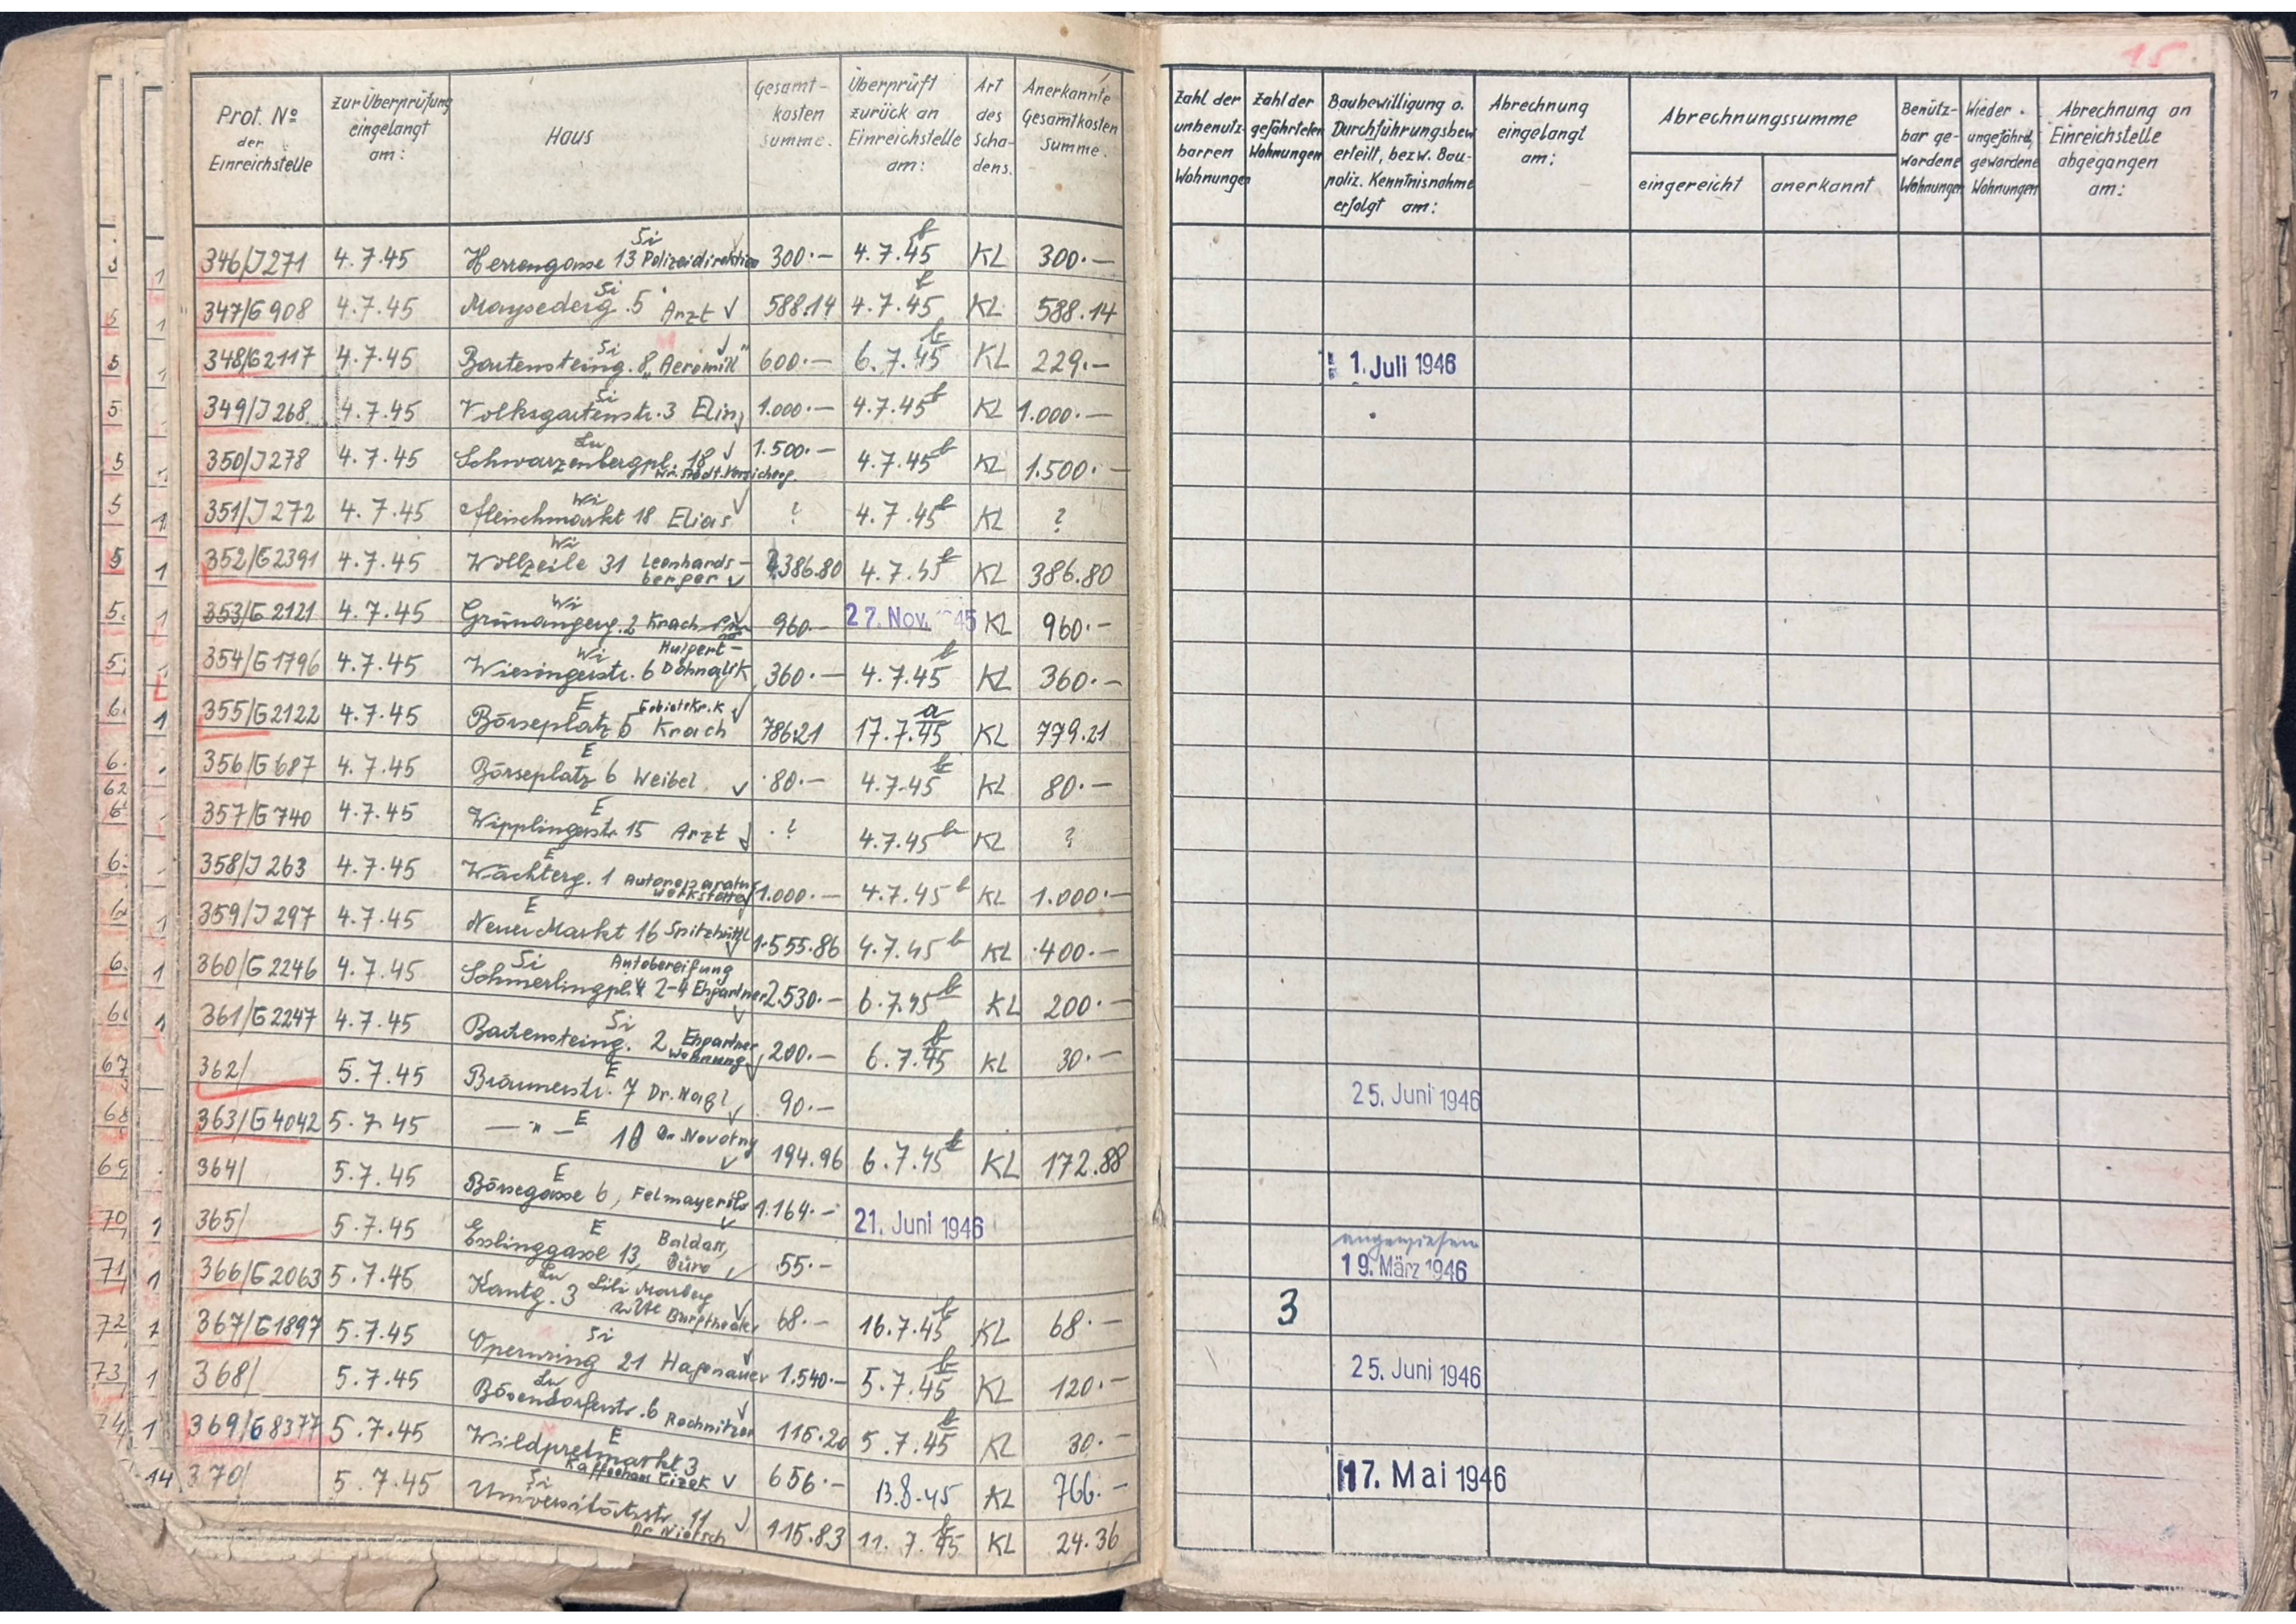 15
Prot. No der Einreichstelle | zur Überprüfung eingelangt am: | Haus | Gesamt-kosten summe. | Überprüft zurück an Einreichstelle am: | Art des Scha-dens. | Anerkannte Gesamtkosten summe. | Zahl der unbenutz-barren Wohnungen | Zahl der gefährteten Wohnungen | Baubewilligung o. Durchführungsbew erteilt, bezw. Bau-poliz. Kenntnisnahme erfolgt am: | Abrechnung eingelangt am: | Abrechnungssumme eingereicht | anerkannt | Benütz-bar ge-wordene Wohnungen | Wieder ungefährd. gewordene Wohnungen | Abrechnung an Einreichstelle abgegangen am:
346/J271 4.7.45 Si Herrengasse 13 Polizeidirektion 300.— 4.7.45 KL 300.—
347/G908 4.7.45 Si Maysederg. 5 Arzt 588.14 4.7.45 KL 588.14
348/G2117 4.7.45 Si Bartensteing. 8 „Aeromill" 600.— 6.7.45 KL 229.— 1. Juli 1946
349/J268 4.7.45 Si Volksgartenstr. 3 Elin 1.000.— 4.7.45 KL 1.000.—
350/J278 4.7.45 Lu Schwarzenbergpl. 18 Wr. Städt. Versicherg. 1.500.— 4.7.45 KL 1.500.—
351/J272 4.7.45 Wi Fleischmarkt 18 Elias ? 4.7.45 KL ?
352/G2391 4.7.45 Wi Wollzeile 31 Leonhards-berger 386.80 4.7.45 KL 386.80
353/G2121 4.7.45 Wi Grünangerg. 2 Krach 960.— 27. Nov. 1945 KL 960.—
354/G1796 4.7.45 Wi Wiesingerstr. 6 Huipert-Dohnalik 360.— 4.7.45 KL 360.—
355/G2122 4.7.45 E Börseplatz 6 Gebietskr.K Krach 786.21 17.7.45 KL 779.21
356/G687 4.7.45 E Börseplatz 6 Weibel 80.— 4.7.45 KL 80.—
357/G740 4.7.45 E Wipplingerstr. 15 Arzt ? 4.7.45 KL ?
358/J263 4.7.45 E Wächterg. 1 Autoreparatur werkstätte 1.000.— 4.7.45 KL 1.000.—
359/J297 4.7.45 E Neuer Markt 16 Spitzhüttl 1.555.86 4.7.45 KL 400.—
360/G2246 4.7.45 Si Schmerlingpl. 2-4 Autobereifung Ehpartner 2.530.— 6.7.45 KL 200.—
361/G2247 4.7.45 Si Bartensteing. 2 Ehpartner Wohnung 200.— 6.7.45 KL 30.—
362/ 5.7.45 E Bräunerstr. 7 Dr. Nagl 90.— 25. Juni 1946
363/G4042 5.7.45 — " — E 10 Dr. Novotny 194.96 6.7.45 KL 172.88
364/ 5.7.45 E Börsegasse 6, Felmayer 1.164.— 21. Juni 1946
365/ 5.7.45 E Esslinggasse 13, Baldass, Büro 55.— angewiesen 19. März 1946
366/G2063 5.7.45 Lu Kantg. 3 Lili Marberg Burgtheater 68.— 16.7.45 KL 68.— 3
367/G1897 5.7.45 Si Opernring 21 Hagenauer 1.540.— 5.7.45 KL 120.— 25. Juni 1946
368/ 5.7.45 Lu Bösendorferstr. 6 Rechnitzer 115.20 5.7.45 KL 30.—
369/G8377 5.7.45 E Wildpretmarkt 3 Kaffeehaus Cizek 656.— 13.8.45 KL 766.— 17. Mai 1946
370/ 5.7.45 Si Universitätsstr. 11 Dr. Nietsch 115.83 11.7.45 KL 24.36